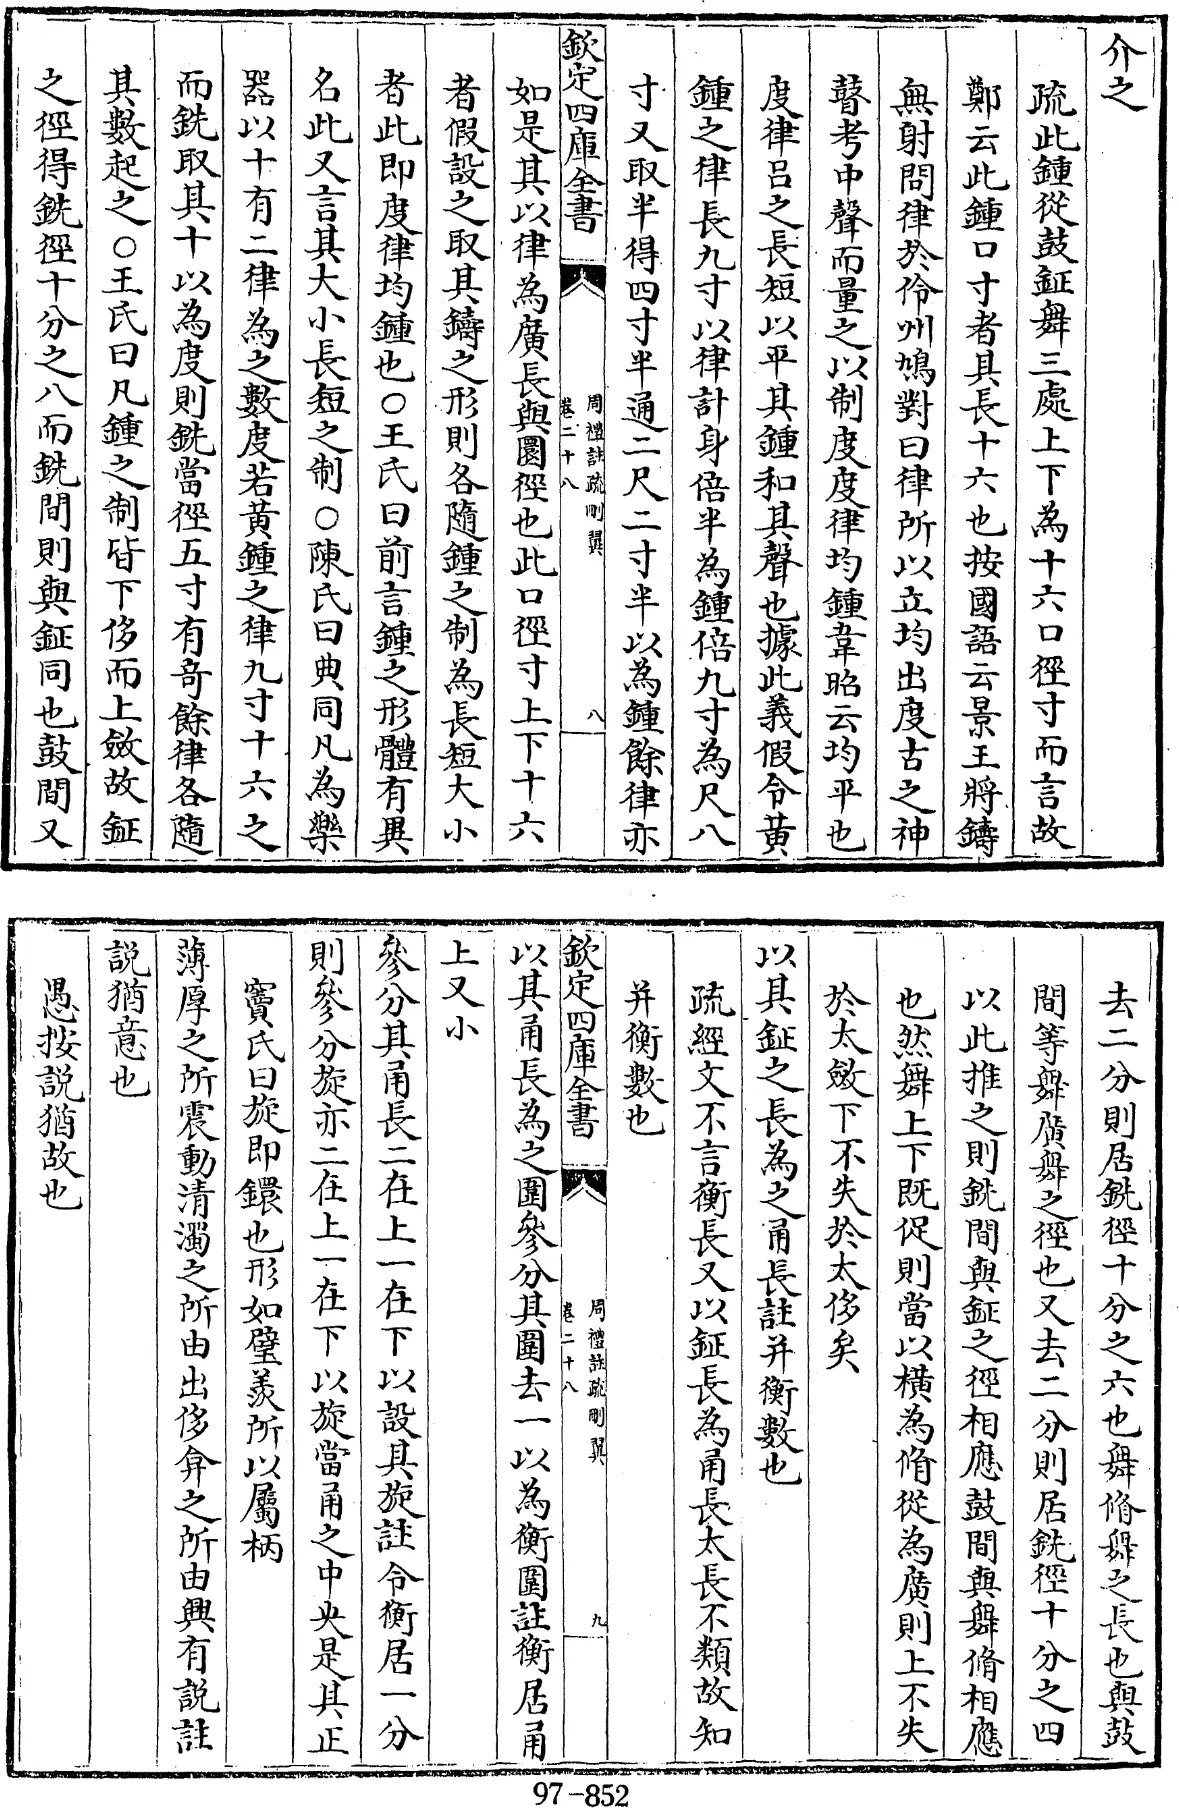 介之
疏此鍾從鼓鉦舞三處上下為十六口徑寸而言故
鄭云此鍾口寸者其長十六也按國語云景王將鑄
無射問律於伶州鳩對曰律所以立均出度古之神
瞽考中聲而量之以制度度律均鍾韋昭云均平也
度律呂之長短以平其鍾和其聲也據此義假令黃
鍾之律長九寸以律計身倍半為鍾倍九寸為尺八
寸又取半得四寸半通二尺二寸半以為鍾餘律亦
欽定四庫全書
周禮註疏刪翼
卷二十八
八
如是其以律為廣長與圜徑也此口徑寸上下十六
者假設之取其鑄之形則各隨鍾之制為長短大小
者此即度律均鍾也○王氏曰前言鍾之形體有異
名此又言其大小長短之制○陳氏曰典同凡為樂
器以十有二律為之數度若黃鍾之律九寸十六之
而銑取其十以為度則銑當徑五寸有奇餘律各隨
其數起之○王氏曰凡鍾之制皆下侈而上斂故鉦
之徑得銑徑十分之八而銑間則與鉦同也鼓間又
去二分則居銑徑十分之六也舞脩舞之長也與鼓
間等舞廣舞之徑也又去二分則居銑徑十分之四
以此推之則銑間與鉦之徑相應鼓間與舞脩相應
也然舞上下既促則當以橫為脩從為廣則上不失
於太斂下不失於太侈矣
以其鉦之長為之甬長註并衡數也
疏經文不言衡長又以鉦長為甬長太長不類故知
并衡數也
欽定四庫全書
周禮註疏刪翼
卷二十八
九
以其甬長為之圍參分其圍去一以為衡圍註衡居甬
上又小
參分其甬長二在上一在下以設其旋註令衡居一分
則參分旋亦二在上一在下以旋當甬之中央是其正
竇氏曰旋即鐶也形如璧羨所以屬柄
薄厚之所震動清濁之所由出侈弇之所由興有說註
說猶意也
愚按說猶故也
97-852